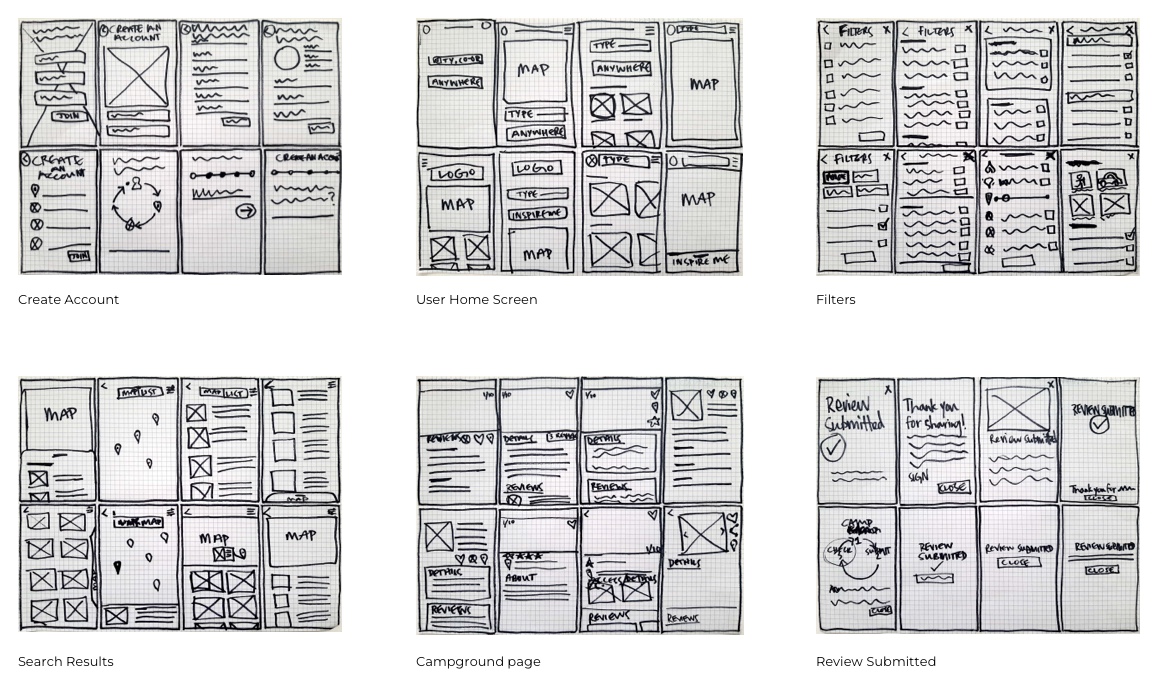 CREATE AN
ACCOUNT
JOIN
CREATE
AN
ACCOUNT
JOIN
Create Account
CITY, CO-OR
ANYWHERE
MAP
TYPE
ANYWHERE
TYPE
ANYWHERE
TYPE
MAP
LOGO
MAP
LOGO
TYPE
INSPIRE ME
MAP
TYPE
MAP
INSPIRE ME
User Home Screen
FILTERS X
FILTERS
X
X
FILTERS X
X
Filters
MAP
MAP LIST
MAP LIST
MAP
MAP
MAP
MAP
Search Results
1/10
REVIEWS
1/10
DETAILS
REVIEWS
1/10
DETAILS
REVIEWS
DETAILS
REVIEWS
1/10
ABOUT
1/10
REVIEWS
DETAILS
REVIEWS
Campground page
X
Review
Submitted
Thank you
for sharing!
SIGN
CLOSE
X
Review Submitted
REVIEW SUBMITTED
Thank you for
CLOSE
CAMP
CHECK
SUBMIT
CLOSE
REVIEW
SUBMITTED
REVIEW SUBMITTED
CLOSE
REVIEW SUBMITTED
CLOSE
Review Submitted